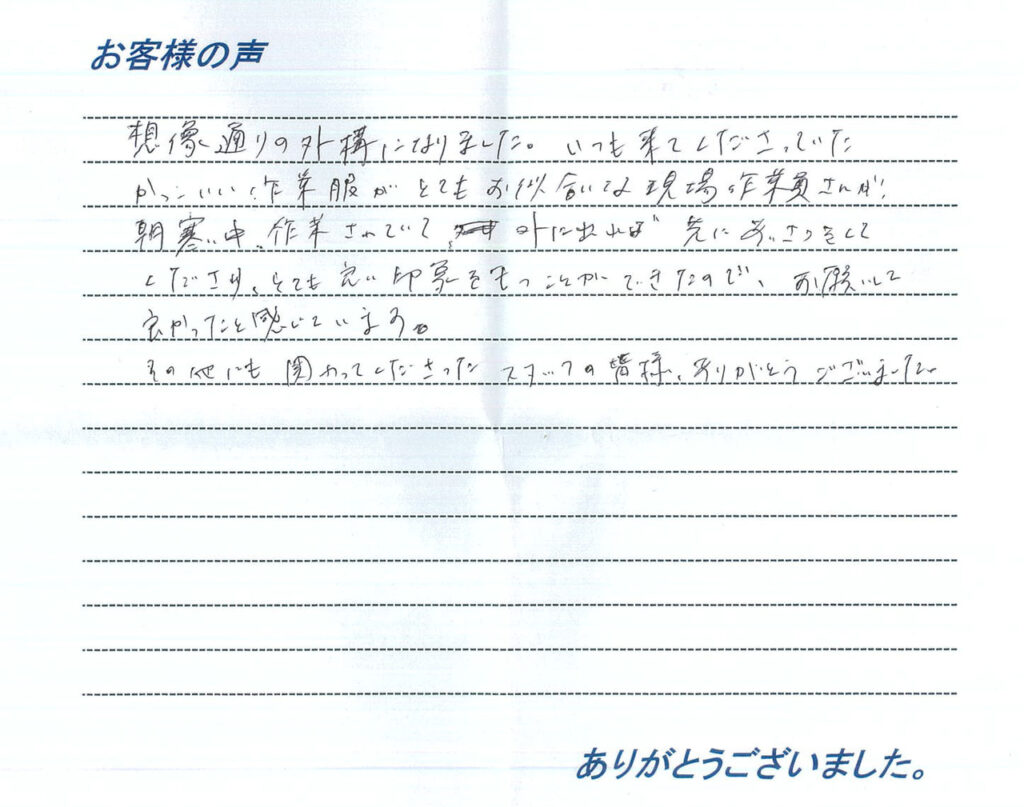 お客様の声
想像通りの外構になりました。いつも来てくださっていた
かっこいい作業服がとてもお似合いな現場作業員さんが、
朝寒い中、作業されていて、外に出れば先にあいさつをして
くださり、とても良い印象をもつことができたので、お願いして
良かったと感じています。
その他にも関わってくださったスタッフの皆様、ありがとうございました。
ありがとうございました。